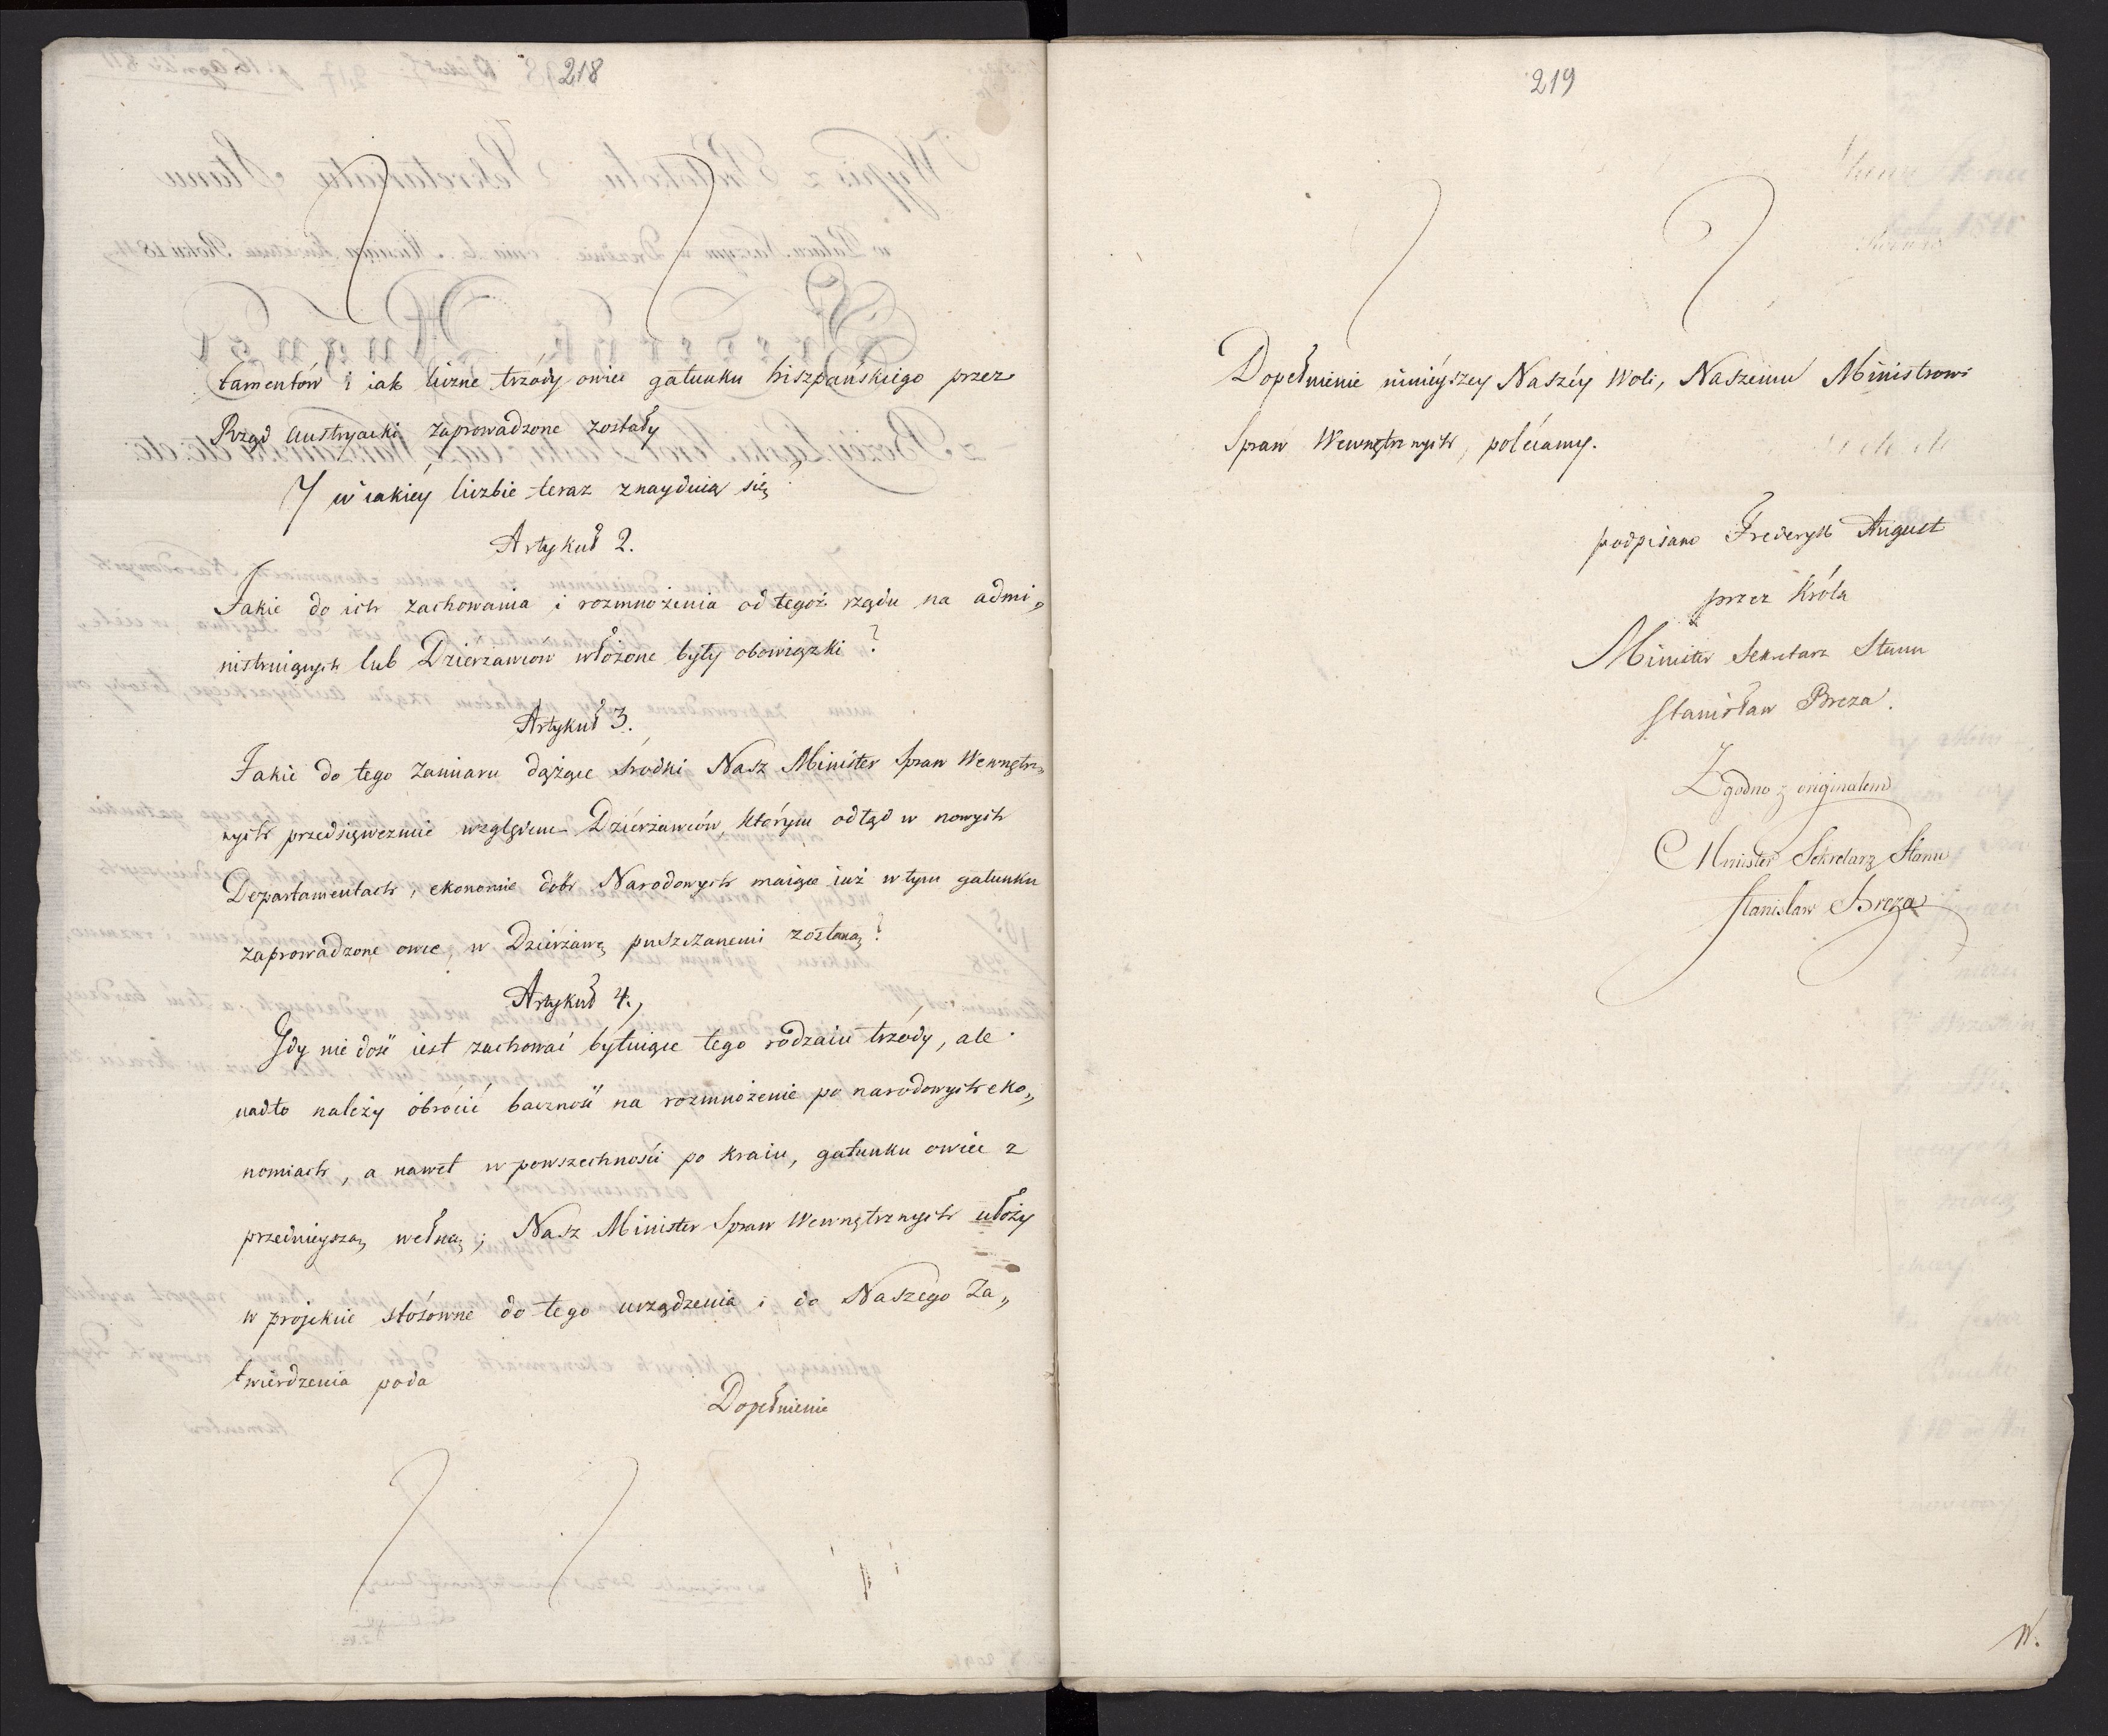 218
tamentów i iak liczne trzódy owiec gatunku hiszpańskiego przez
Rząd Austryacki zaprowadzone zostały
Y w iakiéy liczbie teraz znayduią się?
Artykuł 2.
Jakie do ich zachowania i rozmnożenia od tegoż rządu na admi„
nistruiących lub Dzierzawców włożone były obowiązki?
Artykuł 3.
Jakie do tego zamiaru dążące środki Nasz Minister Spraw Wewnętrz„
nych przedsięweźmie względem Dzierżawców, którym odtąd w nowych
Departamentach, ekonomie dóbr Narodowych maiące iuż w tym gatunku
zaprowadzone owce, w Dzierżawę puszczanemi zostaną?
Artykuł 4.,
Gdy nie dość iest zachować bytuiące tego rodzaiu trzódy, ale
nadto należy obrócić baczność na rozmnożenie po narodowych eko„
nomiach, a nawet w powszechności po kraiu, gatunku owiec z
przednieyszą wełną; Nasz Minister Spraw Wewnętrznych ułoży
w projekcie stósowne do tego urządzenia i do Naszego Za„
twierdzenia poda
Dopełnienie
219
Dopełnienie ninieyszey Naszéy Woli, Naszemu Ministrowi
Spraw Wewnętrznych, polecamy.
podpisano Frederyk August
przez Króla
Minister Sekretarz Stanu
Stanisław Breza.
Zgodno z originałem
Minister Sekretarz Stanu
Stanisław Breza
W.